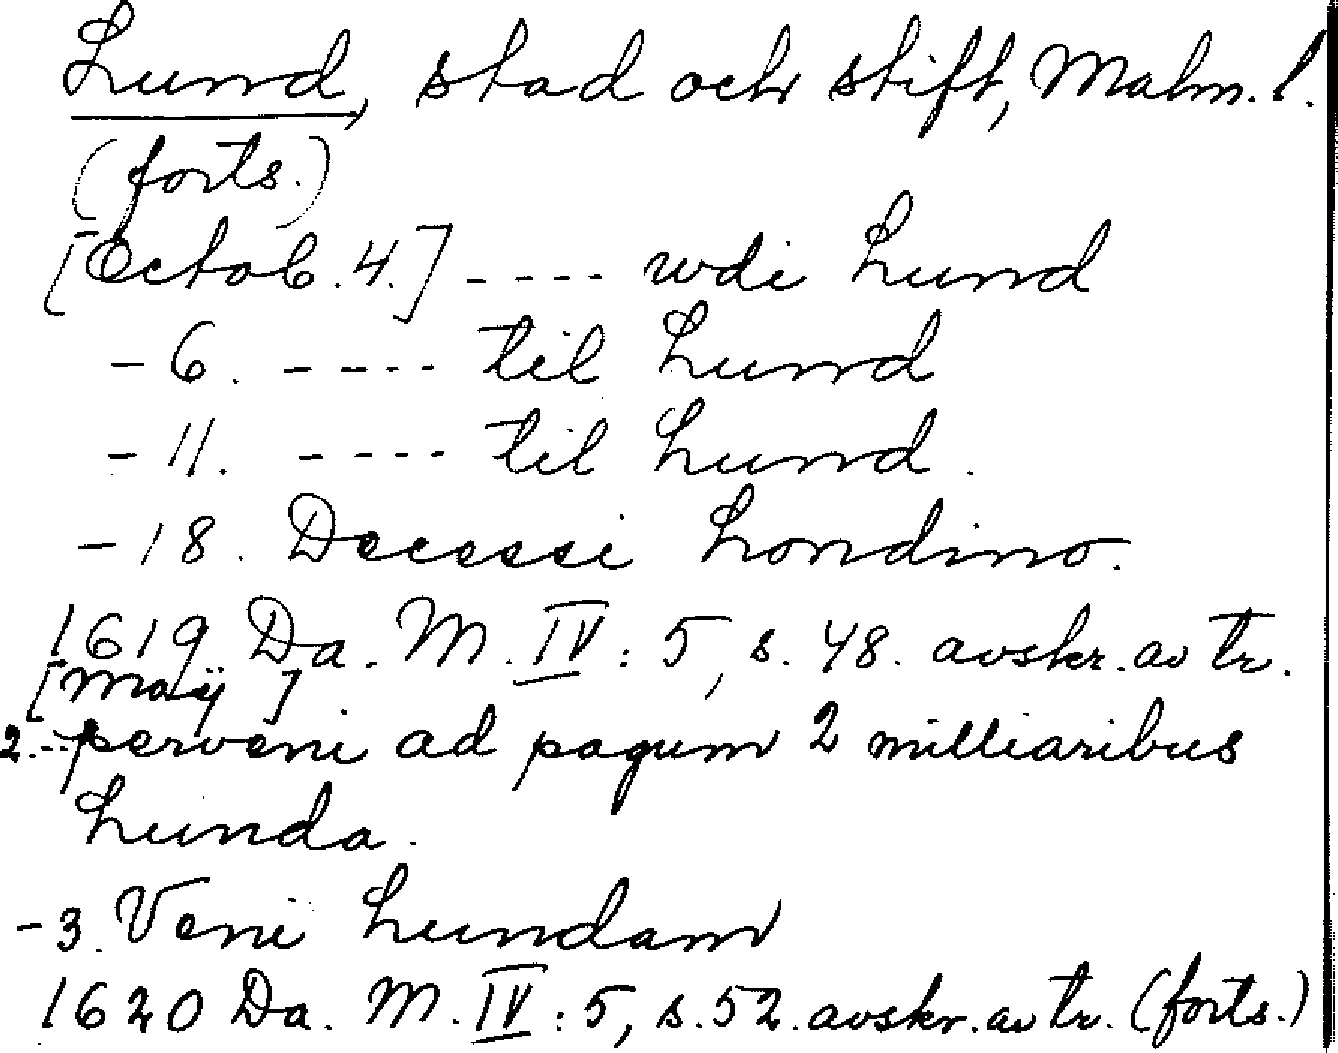 Lund, stad och stift, Malm. l.
(forts.)
[Octob. 4.] ---- wdi Lund
- 6. ---- til Lund
- 11. ---- til Lund.
- 18. Decessi Londino.
1619 Da. M. IV: 5, s. 48. avskr. av tr.
[Maÿ].
2. -- perveni ad pagum 2 milliaribus
Lunda.
- 3. Veni Lundam
1620 Da. M. IV: 5, s. 52. avskr. av tr. (forts.)